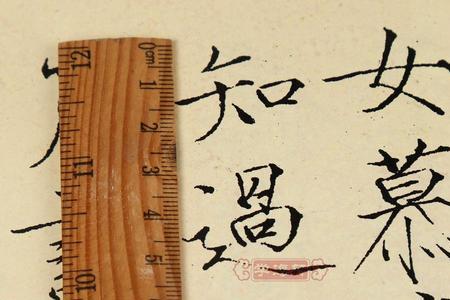 女慕
知過
0cm 1 2 3 4 5
12 11 10